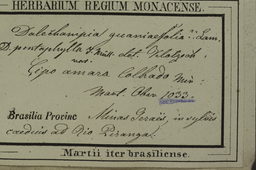 HERBARIUM REGIUM MONACENSE.
Dalechampia Lam.
D. pentaphylla
Cipo amara Colhado Min:
Mart. Obser. 1033.
Brasilia Provinc Minas Geraës, in sylvis
caeduis ad Rio Piranga.
Martii iter brasiliense.